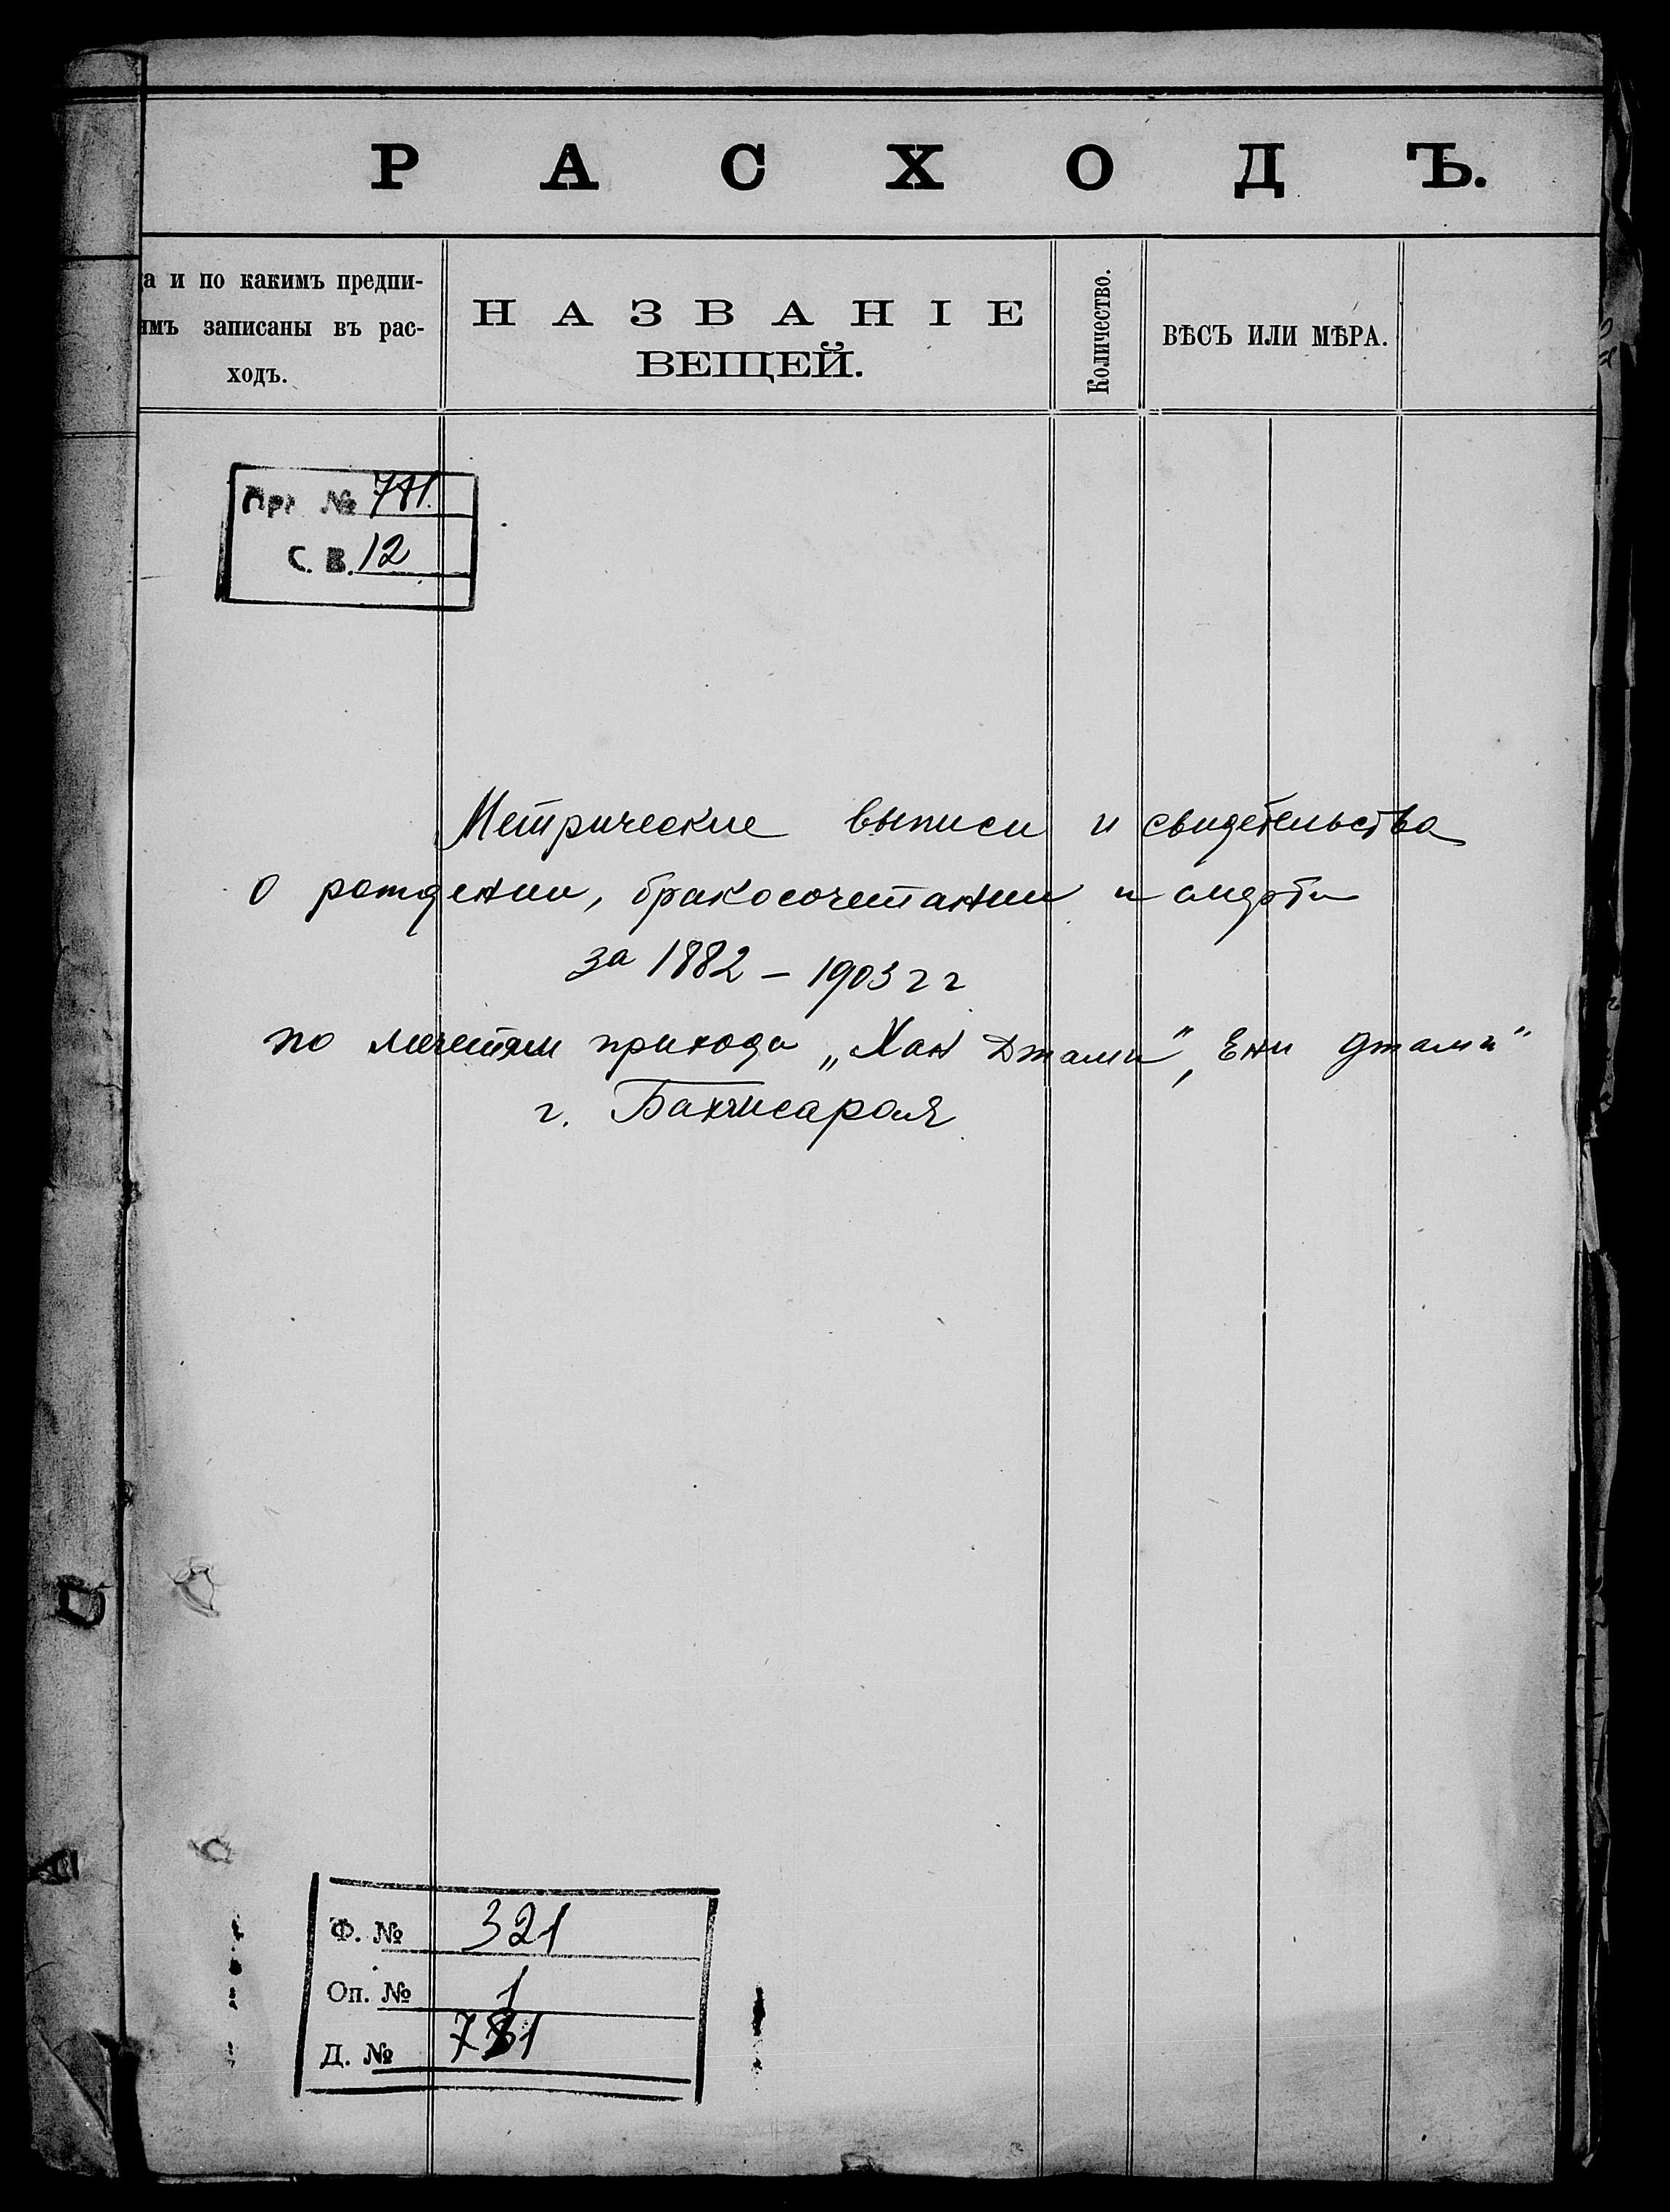 РАСХОДЪ.
а и по какимъ предпи-
имъ записаны въ рас-
ходъ.
НАЗВАНІЕ
ВЕЩЕЙ.
Количество.
ВѢСЪ ИЛИ МѢРА.
Арх №
С. В. 12
Метрические выписи и свидетельства
о рождении, бракосочетании и смерти
за 1882 – 1903 г г
по мечетям прихода „Хан Джами", Ени Джами"
г. Бахчисарая
Ф. № 321
Оп. № 1
Д. №